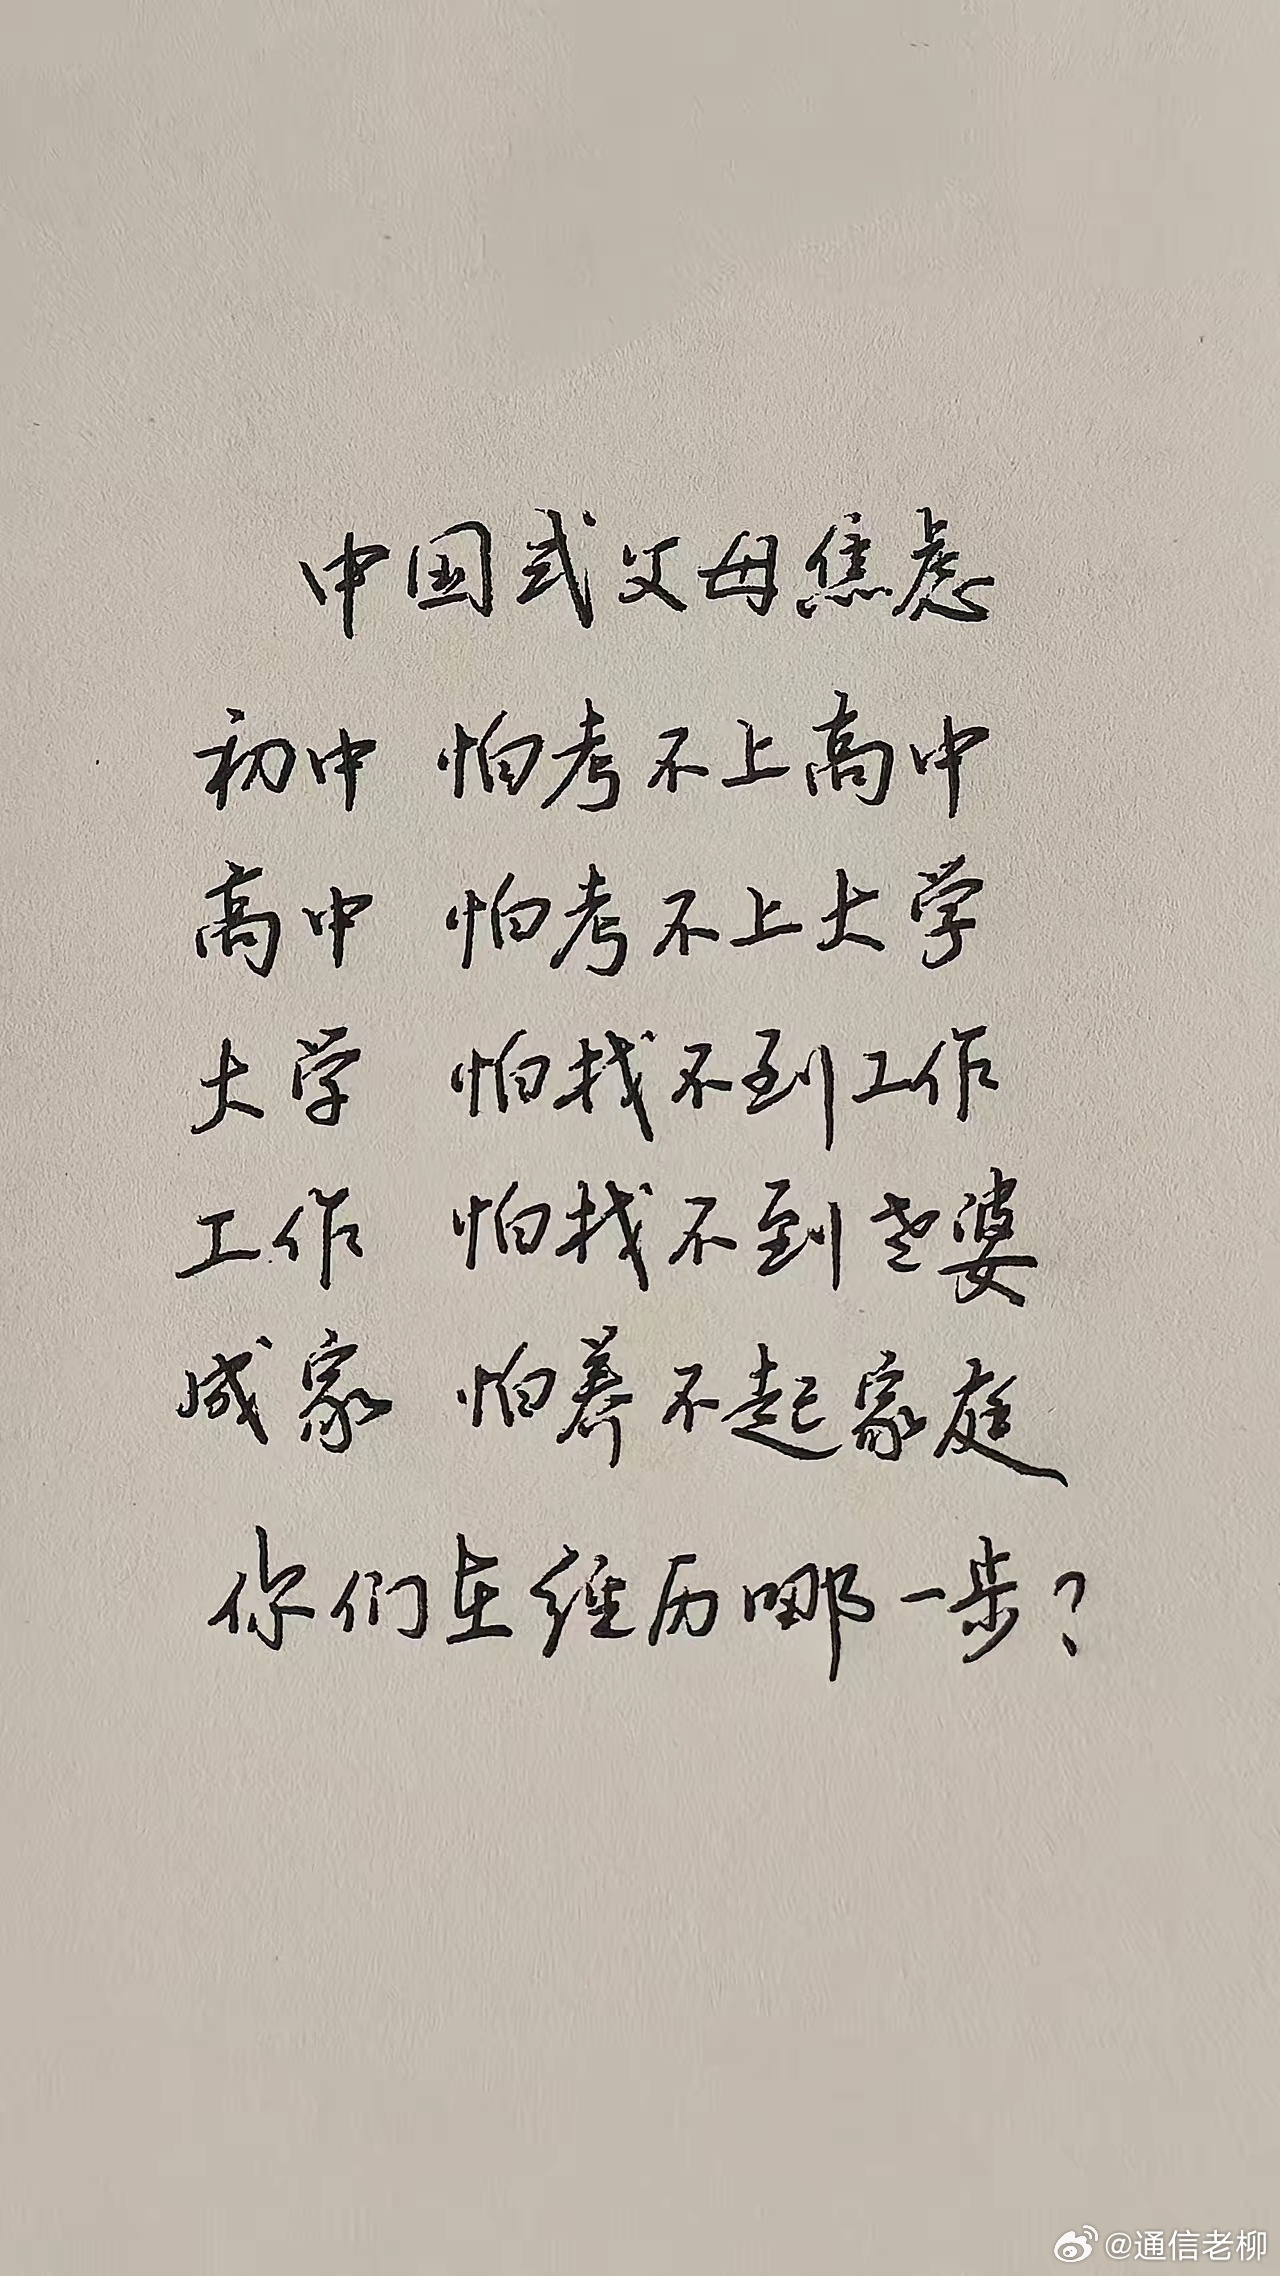 中国式父母焦虑
初中 怕考不上高中
高中 怕考不上大学
大学 怕找不到工作
工作 怕找不到老婆
成家 怕养不起家庭
你们在经历哪一步?
@通信老柳